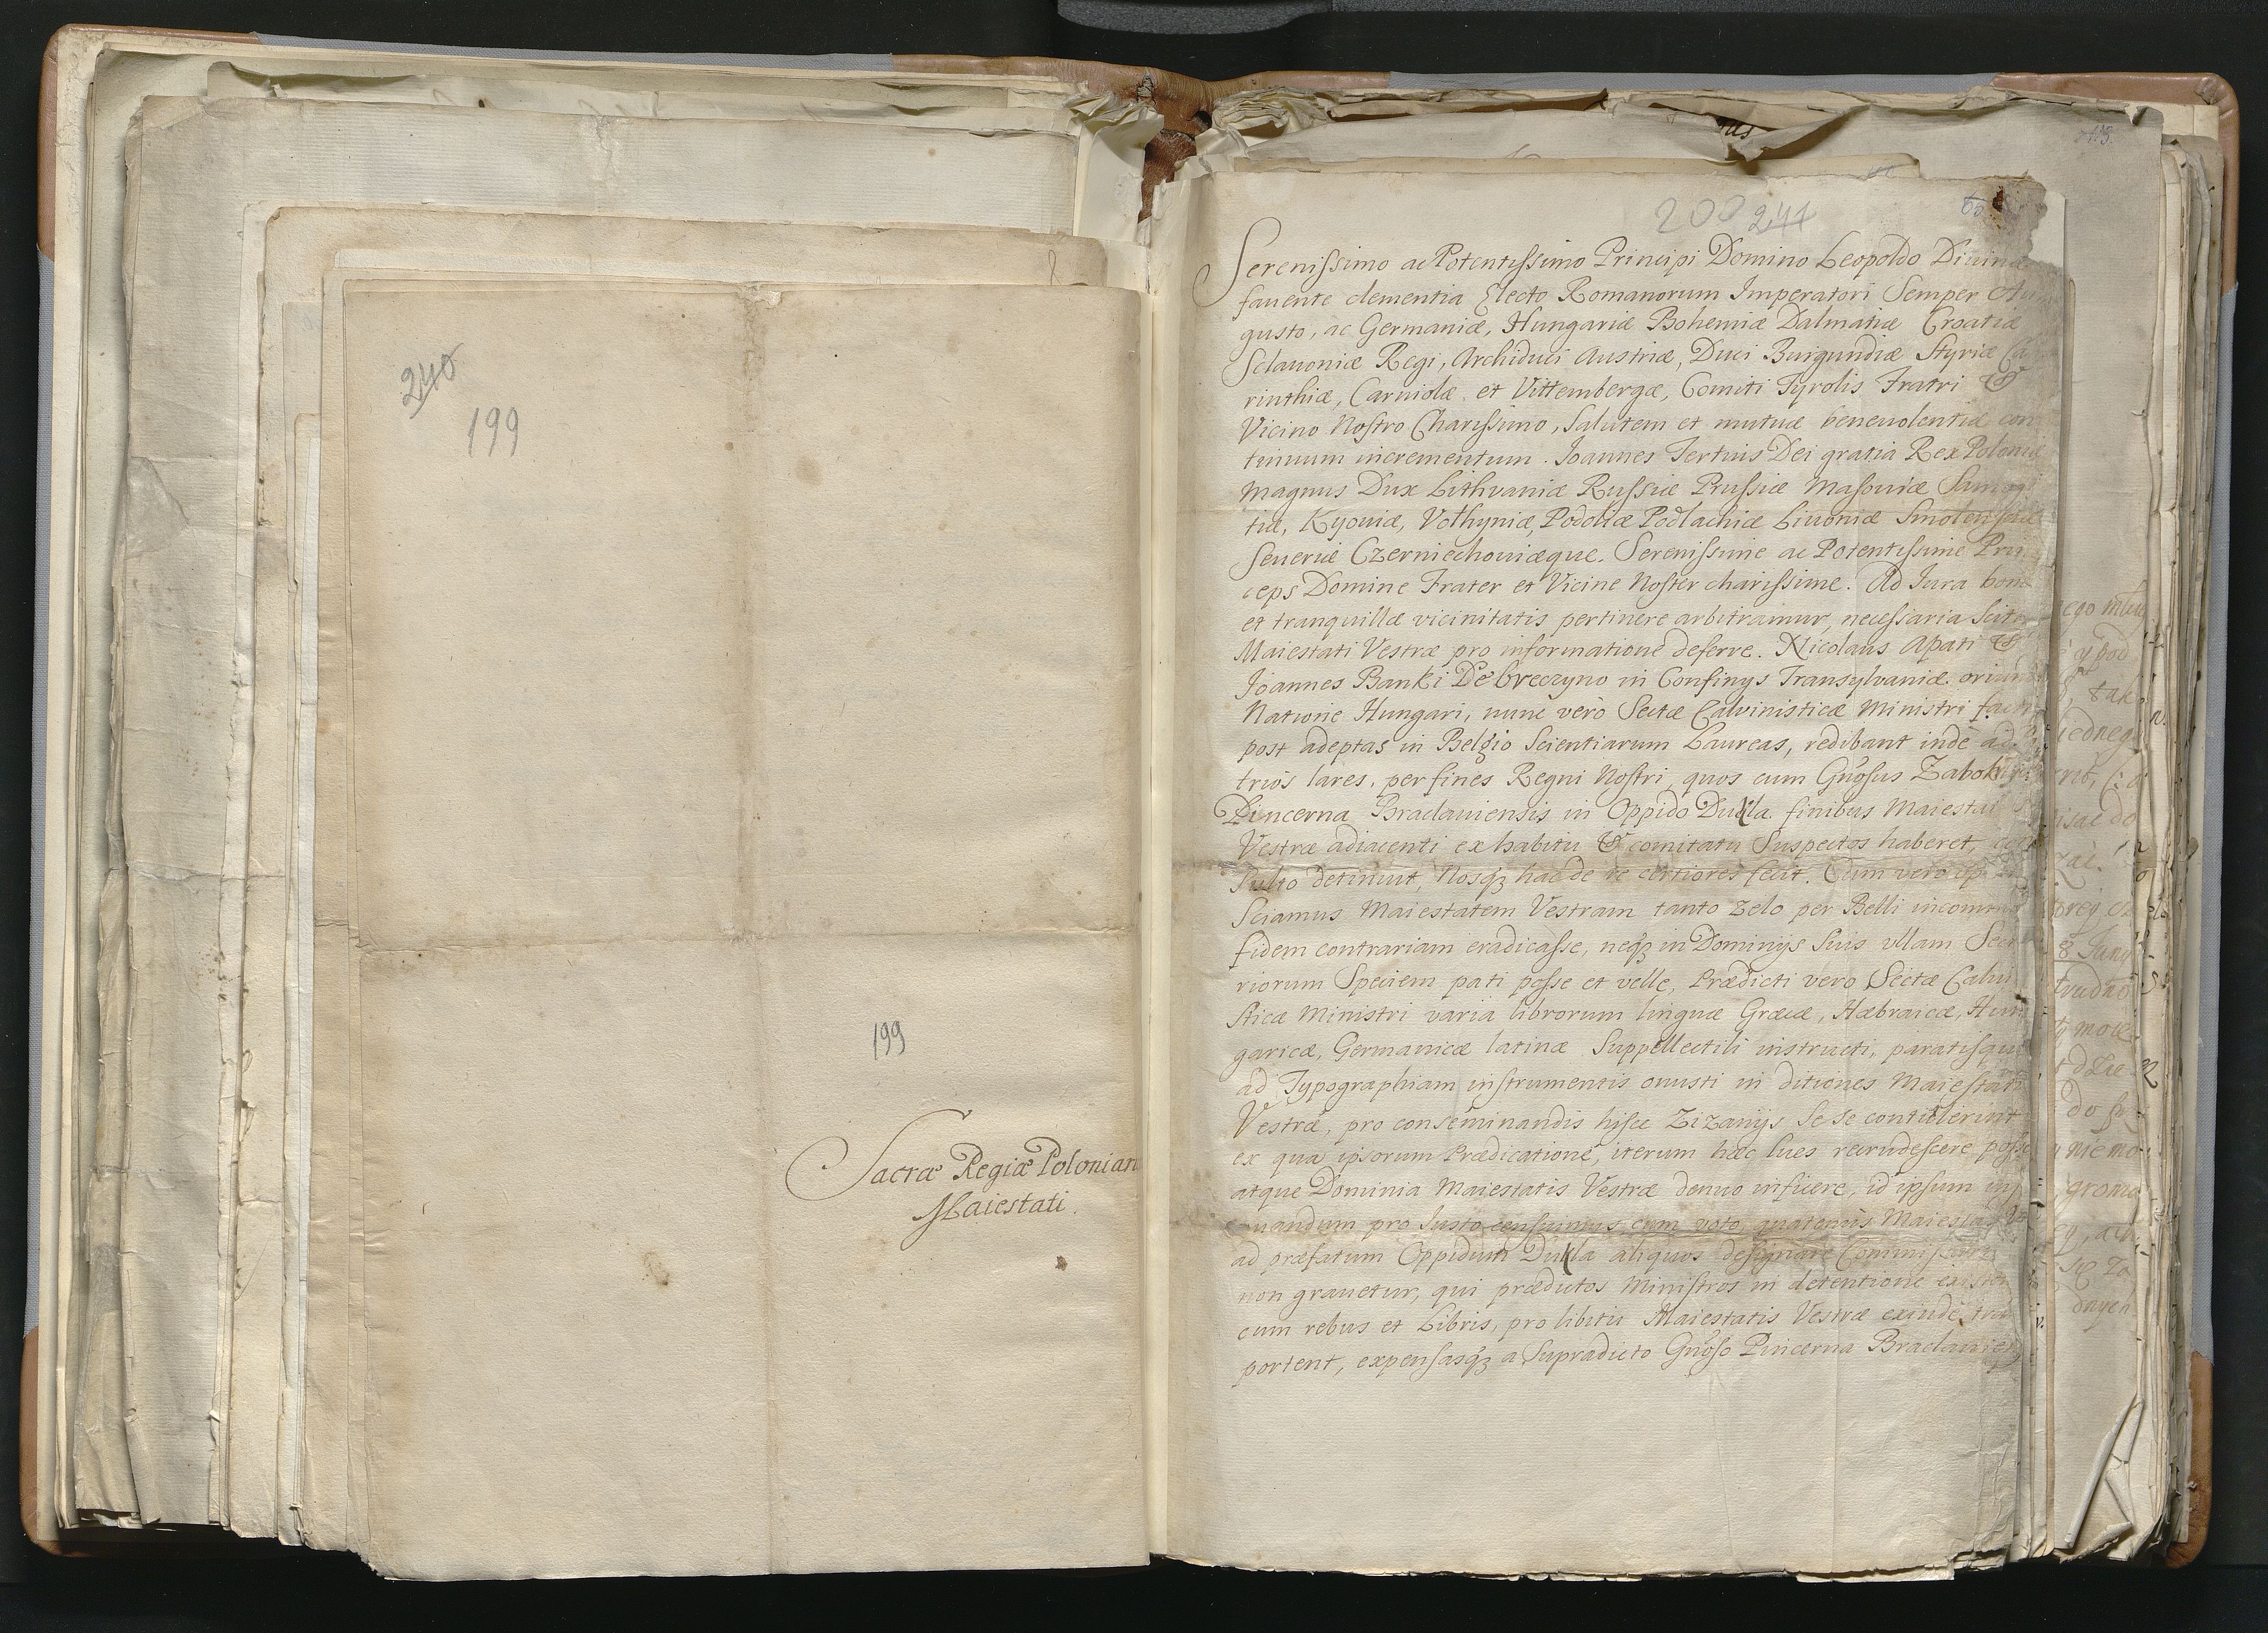 240
199
199
Sacræ Regiæ Poloniar
Maiestati.
200 244
65
Serenissimo ac Potentissimo Principi Domino Leopoldo Diuina
fauente clementia Electo Romanorum Imperatori Semper Au
gusto, ac Germaniæ, Hungariæ Bohemiæ Dalmatiæ Croatiæ
Sclauoniæ Regi, Archiduci Austriæ, Duci Burgundiæ Styriæ Ca
rinthiæ, Carniolæ et Vittembergæ, Comiti Tyrolis Fratri &
Vicino Nostro Charissimo, Salutem et mutuæ beneuolentiæ con
tinuum incrementum. Joannes Tertius Dei gratia Rex Poloniæ
Magnus Dux Lithvaniæ Russiæ Prussiæ Masouiæ Samogi
tiæ, Kyouiæ, Volhyniæ, Podoliæ Podlachiæ Liuoniæ Smolensciæ
Seueriæ Czerniechouiæque. Serenissime ac Potentissime Prin
ceps Domine Frater et Vicine Noster charissime. Ad Jura bonæ
et tranquillæ vicinitatis pertinere arbitramur, necessaria Scitu
Maiestati Vestræ pro informatione deferre. Nicolaus Apati &
Joannes Banki Debreczyno in Confinys Transylvaniæ oriun
Natione Hungari, nunc verò Sectæ Calvinisticæ Ministri facti
post adeptas in Belgio Scientiarum Laureas, redibant inde ad
trios lares, per fines Regni Nostri, quos cum Gnosus Zabok
Pincerna Braclauiensis in Oppido Dukla finibus Maiestat
Vestræ adiacenti ex habitu & comitatu Suspectos haberet, con
sulto detinuit, Nosq3 hac de re certiores fecit. Cum vero
Sciamus Maiestatem Vestram tanto zelo per Belli incommo
fidem contrariam eradicasse, neq3 in Dominijs Suis vllam Sect
riorum Speciem pati posse et velle, Prædicti vero Sectæ Calui
sticæ Ministri varia librorum linguæ Græcæ, Hæbraicæ, Hun
garicæ, Germanicæ latinæ Suppellectili instructi, paratisque
ad Typographiam instrumentis onusti in ditiones Maiestati
Vestræ, pro conseminandis hisce Zizanijs Se se contulerint
ex qua ipsorum Prædicatione, iterum hæc lues recrudescere posse
atque Dominia Maiestatis Vestræ denuo inficere, id ipsum
uandum pro Justo censuimus, cum voto, quatenus Maiestas
ad præfatum Oppidum Dukla aliquos designare Commissar
non grauetur, qui prædictos Ministros in detentione existen
cum rebus et Libris, pro libitu Maiestatis Vestræ exinde tran
portent, expensasq3 a Supradicto Gnoso Pincerna Braclauien